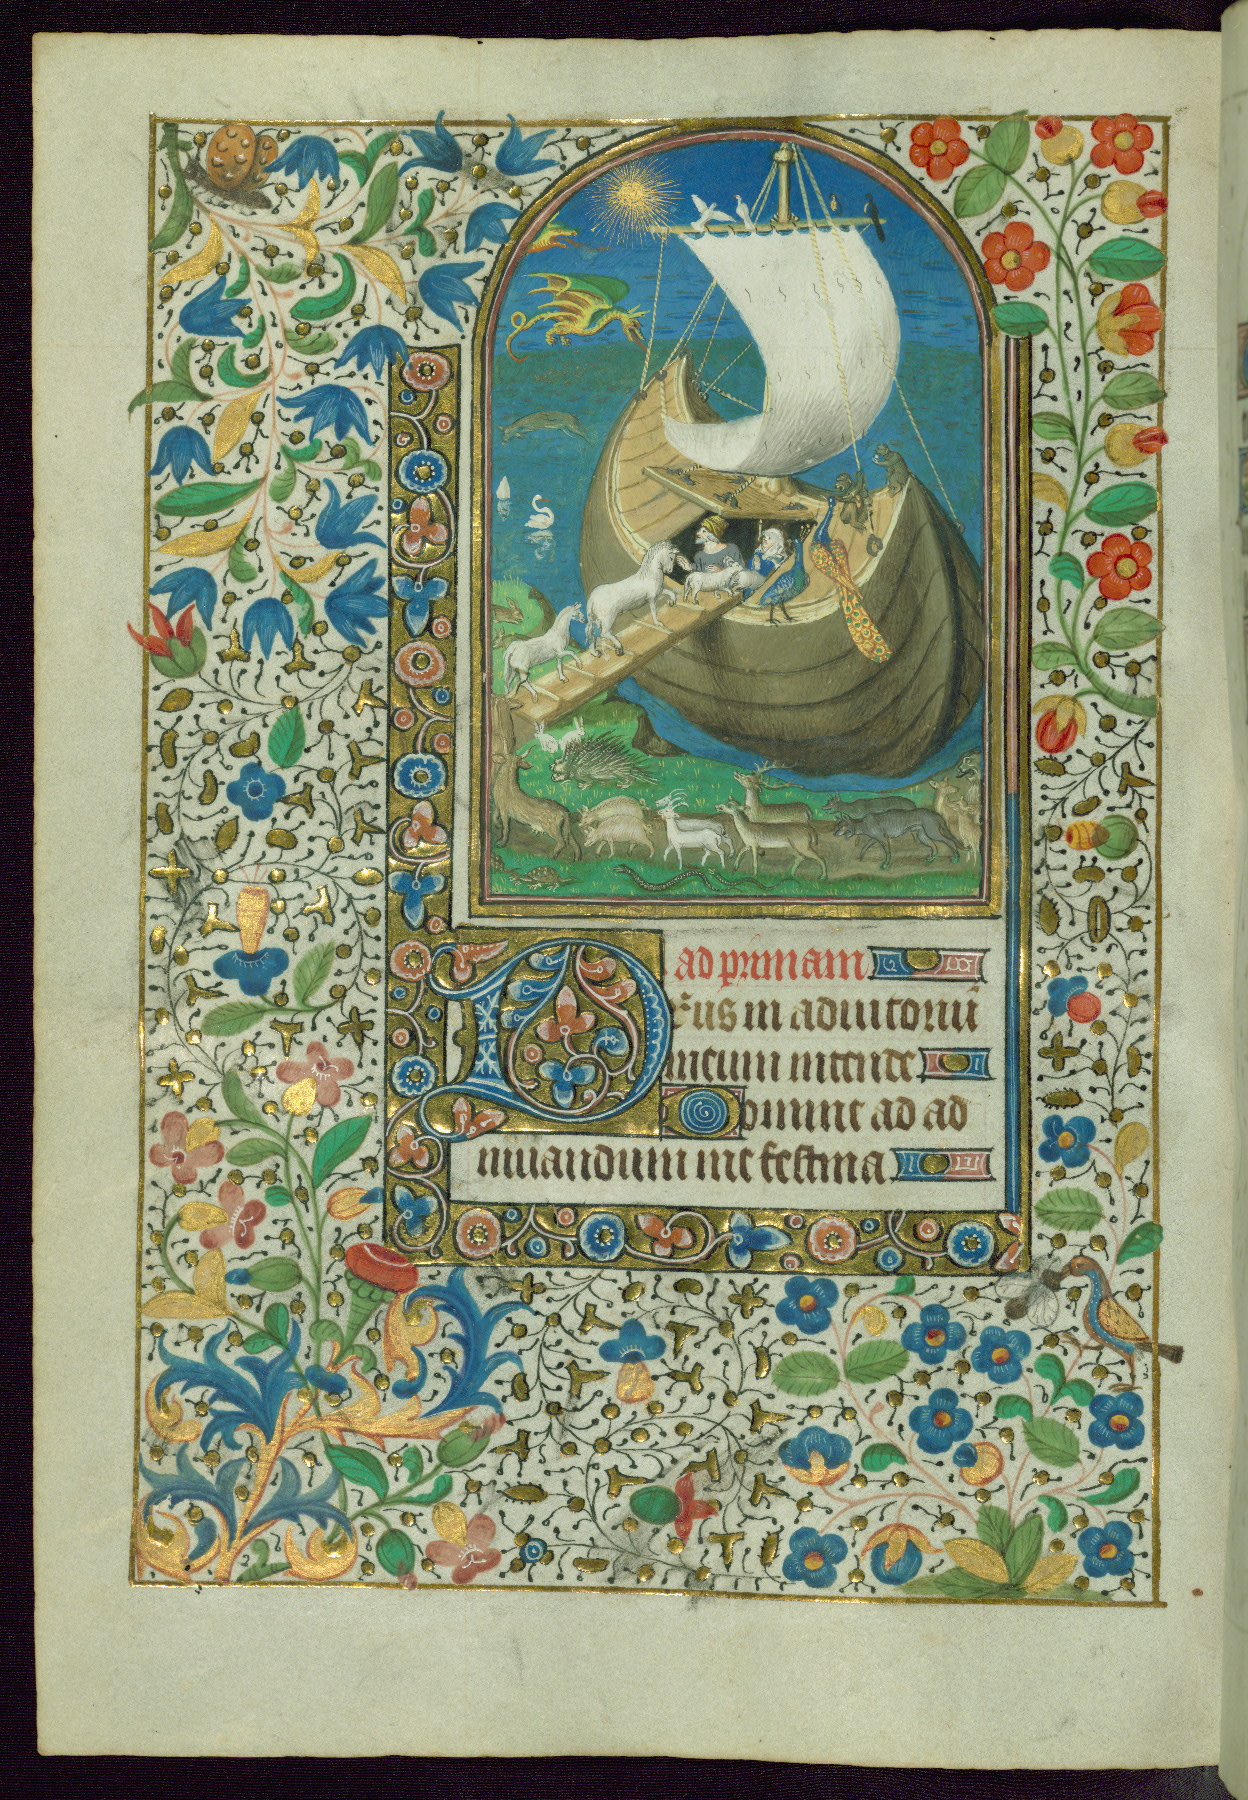 ad primam
Deus in adiutoriū
meum intende
Domine ad ad
iuuandum me festina